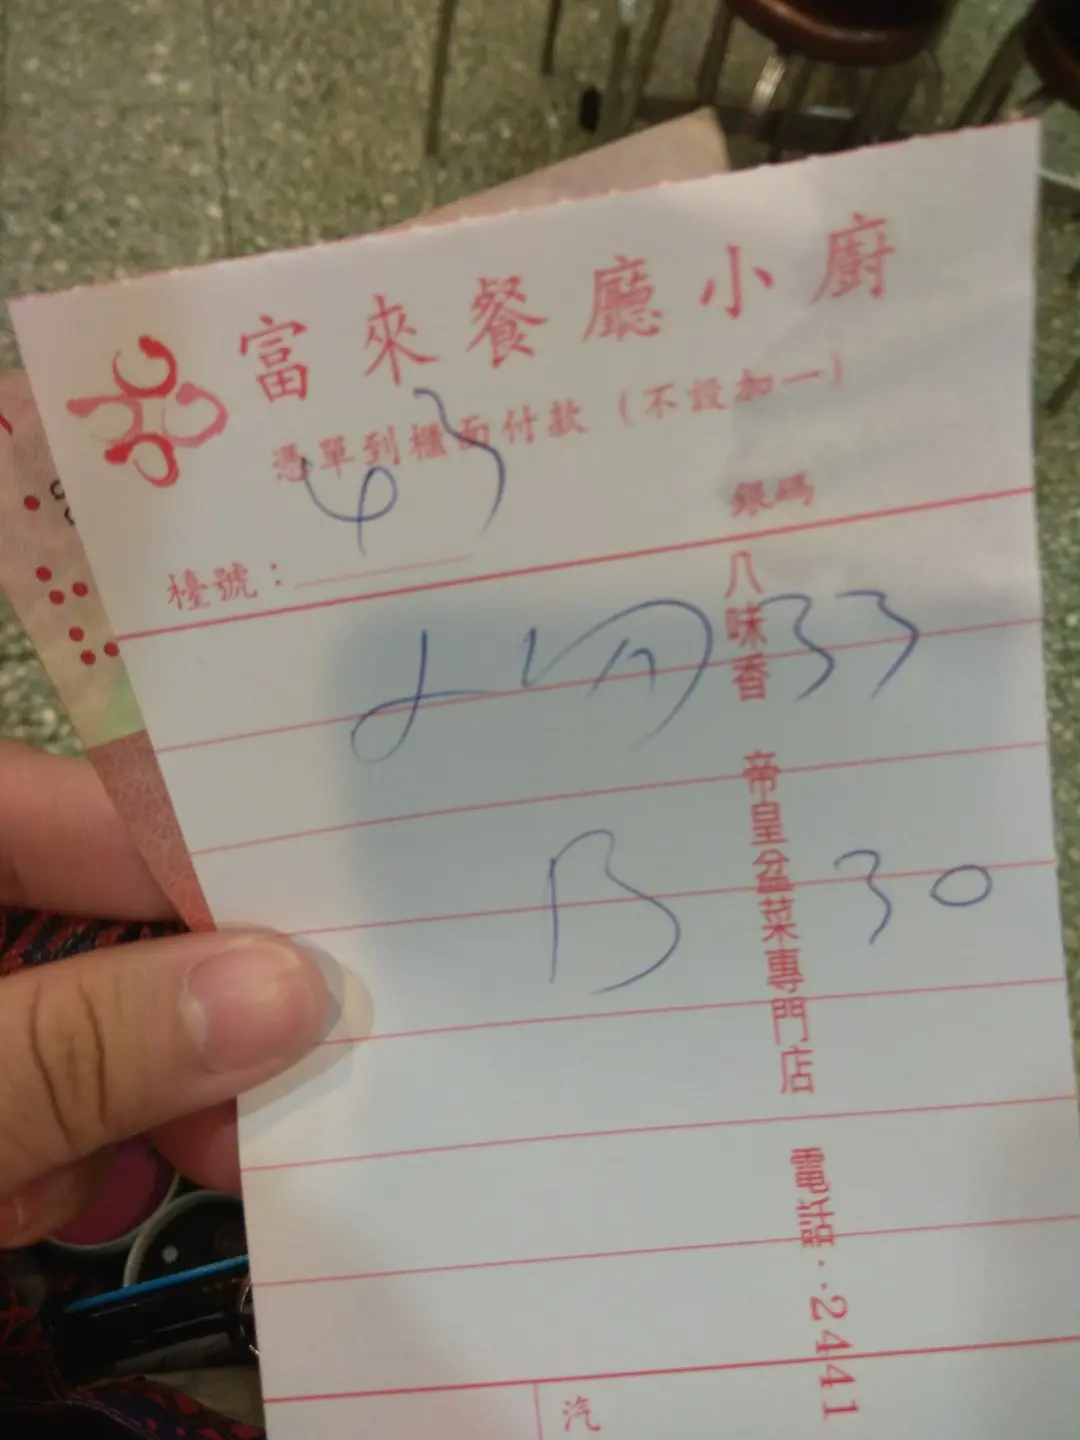 富來餐廳小廚
憑單到櫃面付款（不設加一）
銀碼
檯號：
33
B 30
八味香 帝皇盆菜專門店 電話：2441
汽